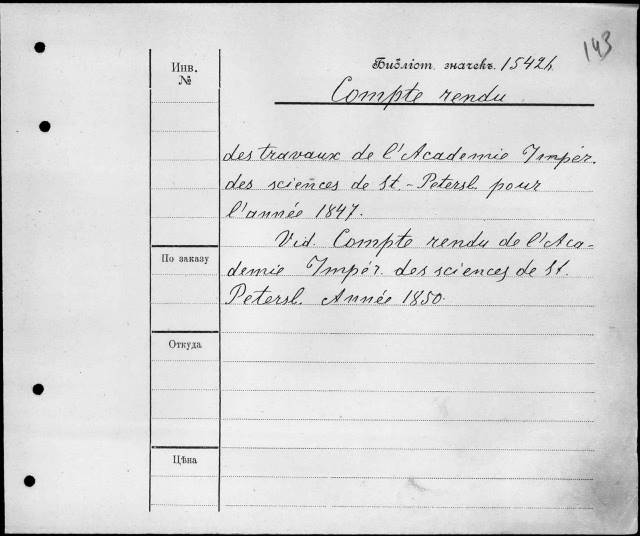 143
Инв.
№
Библіот. значекъ 15424
Compte rendu
des travaux de l'Academie Impér.
des sciences de St.-Petersb. pour
l'année 1847.
Vid. Compte rendu de l'Aca-
demie Impér. des sciences de St.
Petersb. Année 1850.
По заказу
Откуда
Цѣна